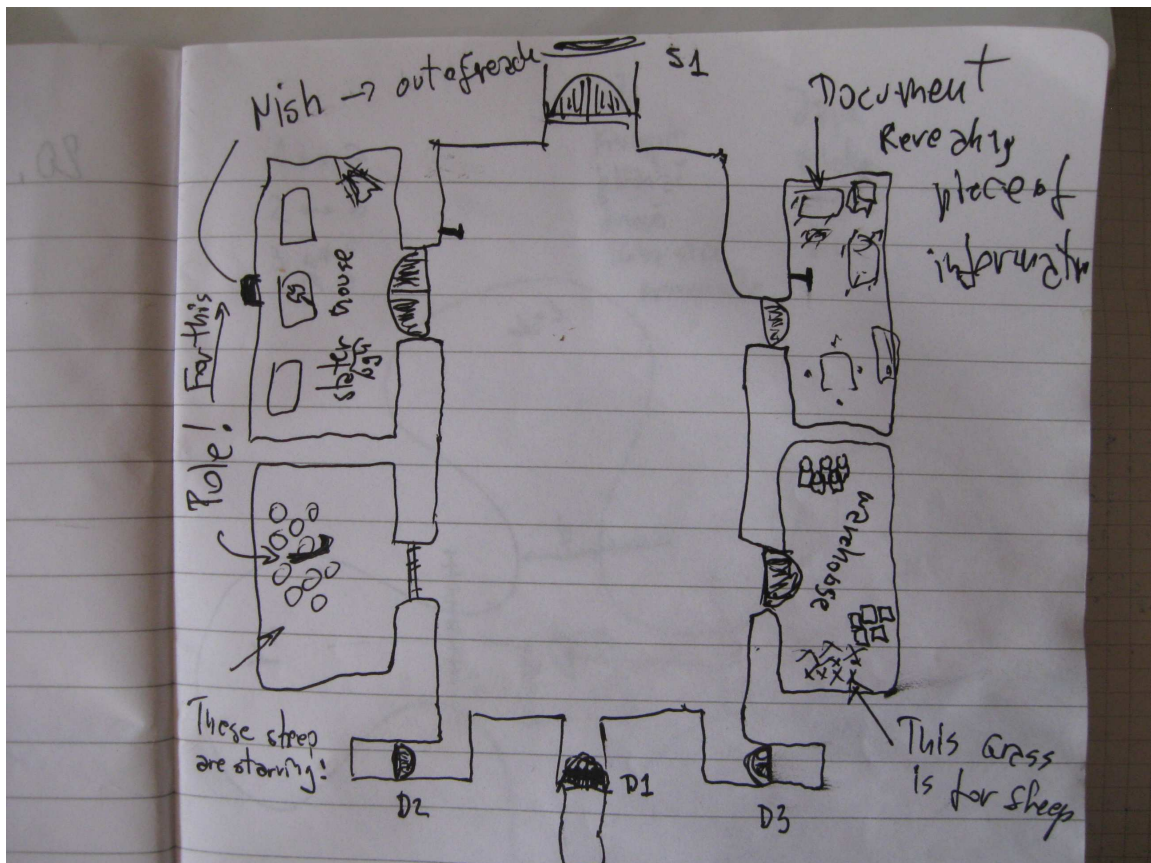 Nish → out of reach
S1
Document
Revealing
piece of
informatn
For this
Pole!
slater house
warehouse
These sheep
are starving!
This Grass
is for sheep
D2
D1
D3